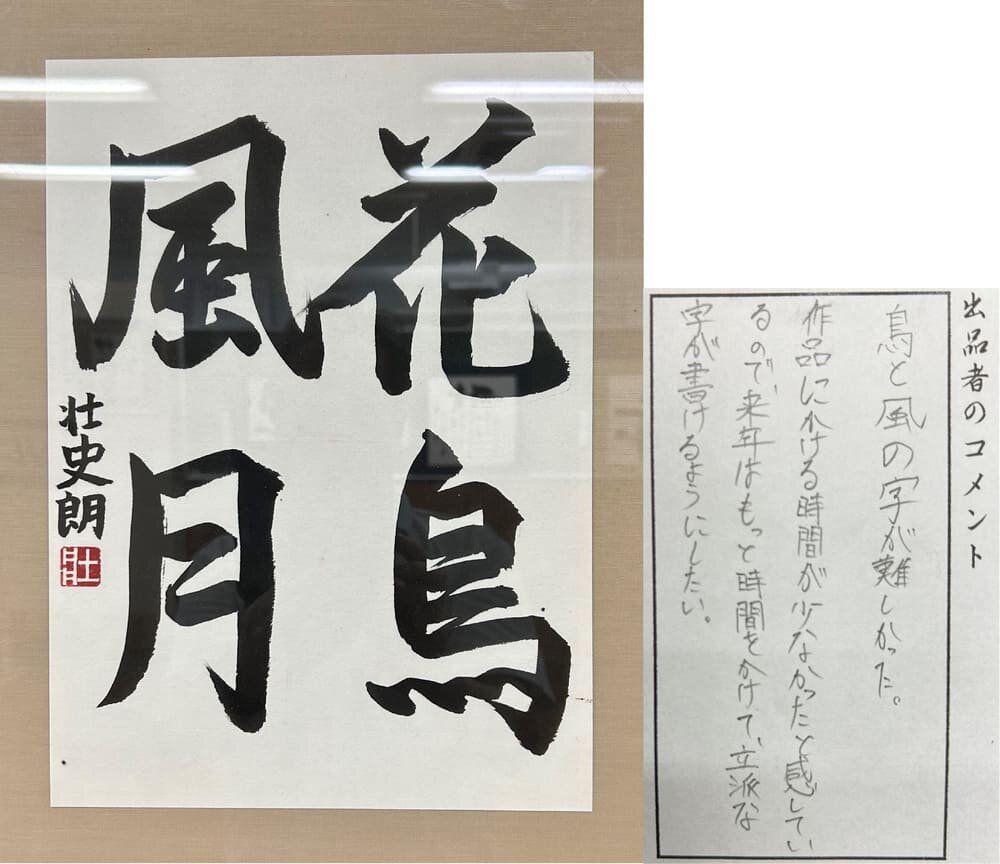 花鳥
風月
壮史朗
出品者のコメント
鳥と風の字が難しかった。
作品にかける時間が少なかったと感してい
るので、来年はもっと時間をかけて、立派な
字が書けるようにしたい。